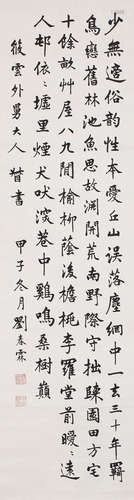 少無適俗韵性本愛丘山誤落塵網中一去三十年羈
鳥戀舊林池魚思故淵開荒南野際守拙歸園田方宅
十餘畝艸屋八九間榆柳蔭後檐桃李羅堂前曖曖遠
人邨依〻墟里煙犬吠深巷中鷄鳴桑樹顛
筱雲外舅大人督書 甲子冬月劉春霖